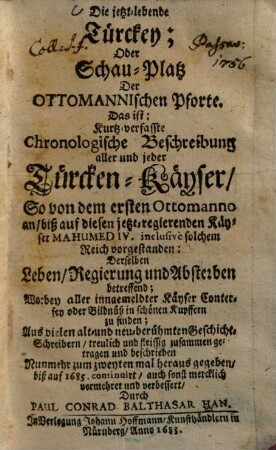 Die jetzt-lebende
Türckey;
Oder
Schau-Platz
Der
OTTOMANNIschen Pforte.
Das ist:
Kurtz-verfasste
Chronologische Beschreibung
aller und jeder
Türcken-Käyser/
So von dem ersten Ottomanno
an/biß auf diesen jetzt-regierenden Käy-
ser MAHUMED IV. inclusivè solchem
Reich vorgestanden:
Derselben
Leben/Regierung und Absterben
betreffend;
Worbey aller inngemeldter Käyser Conter-
fey oder Bildnüß in schönen Kupffern
zu finden;
Aus vielen alt-und neu-berühmten Geschicht-
Schreibern / treulich und fleissig zusammen ge-
tragen und beschrieben
Nunmehr zum zweyten mal heraus gegeben/
biß auf 1685. continuirt / auch sonst mercklich
vermehret und verbessert/
Durch
PAUL CONRAD BALTHASAR HAN.
In Verlegung Johann Hoffmann/Kunsthändlern in
Nürnberg/Anno 1685.
1756